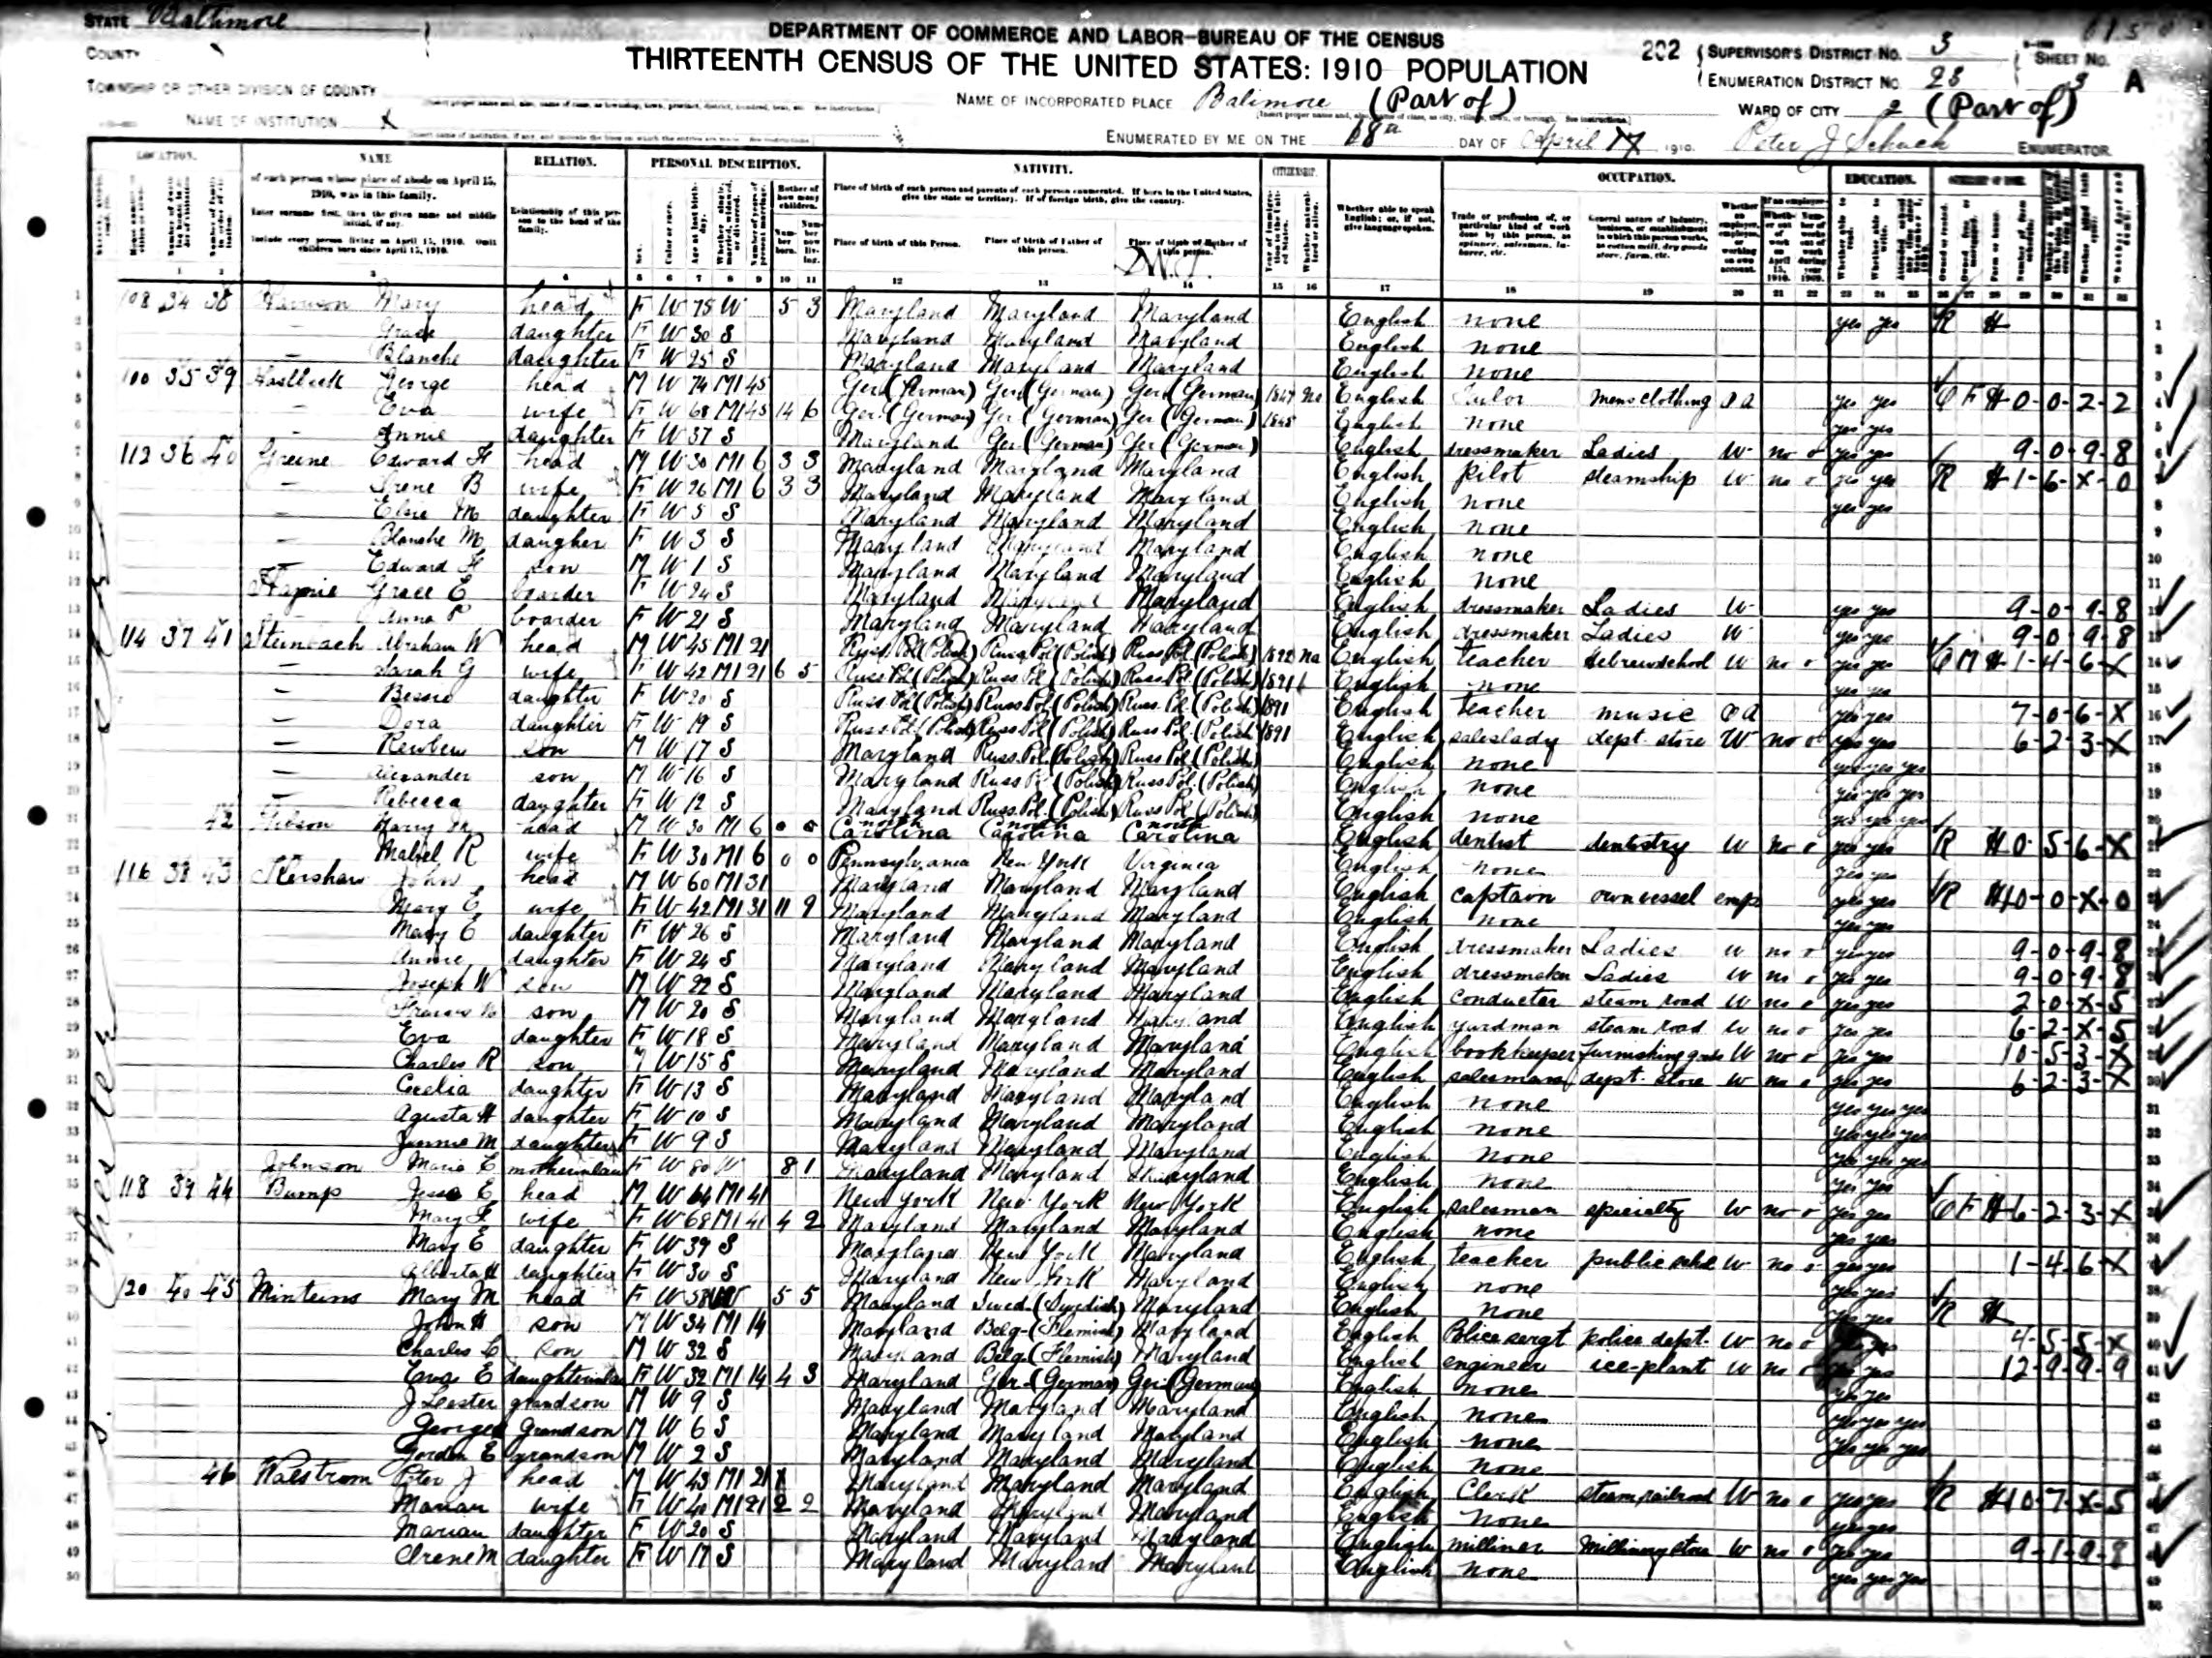 STATE Baltimore
DEPARTMENT OF COMMERCE AND LABOR—BUREAU OF THE CENSUS
COUNTY
THIRTEENTH CENSUS OF THE UNITED STATES: 1910 POPULATION
202
SUPERVISOR'S DISTRICT NO. 3
SHEET NO.
ENUMERATION DISTRICT NO. 28
3 A
TOWNSHIP OR OTHER DIVISION OF COUNTY
NAME OF INCORPORATED PLACE Balimore (Part of)
WARD OF CITY 2 (Part of)
NAME OF INSTITUTION X
ENUMERATED BY ME ON THE 18 DAY OF April 1910. Peter J Schuch ENUMERATOR
LOCATION. NAME RELATION. PERSONAL DESCRIPTION. NATIVITY. CITIZENSHIP. OCCUPATION. EDUCATION.
of each person whose place of abode on April 15, 1910, was in this family.
Enter surname first, then the given name and middle initial, if any.
Include every person living on April 15, 1910. Omit children born since April 15, 1910.
Relationship of this person to the head of the family.
Place of birth of each person and parents of each person enumerated. If born in the United States, give the state or territory. If of foreign birth, give the country.
Place of birth of this Person. Place of birth of Father of this person. Place of birth of Mother of this person.
Whether able to speak English; or, if not, give language spoken.
Trade or profession of, or particular kind of work done by this person, as spinner, salesman, laborer, etc.
General nature of industry, business, or establishment in which this person works, as cotton mill, dry goods store, farm, etc.
108 34 38 Mary head F W 75 W 5 3 Maryland Maryland Maryland English none yes yes R H
Grace daughter F W 30 S Maryland Maryland Maryland English none
Blanche daughter F W 25 S Maryland Maryland Maryland English none
35 39 George head M W 74 M1 45 Ger (German) Ger (German) Ger (German) English mens clothing O A yes yes O F H 0-0-2-2
Eva wife F W 68 M1 45 14 6 Ger (German) Ger (German) Ger (German) English none yes yes
Annie daughter F W 37 S Maryland Ger (German) Ger (German) English dressmaker Ladies W no 0 yes yes 9-0-9-8
112 36 40 Greine Edward F head M W 30 M1 6 3 3 Maryland Maryland Maryland English pilot steamship W no 0 yes yes R H 1-6-X-0
Irene B wife F W 26 M1 6 3 3 Maryland Maryland Maryland English none yes yes
Elsie M daughter F W 5 S Maryland Maryland Maryland English none
Blanche M daugher F W 3 S Maryland Maryland Maryland English none
Edward F son M W 1 S Maryland Maryland Maryland English none
Grace E boarder F W 24 S Maryland Maryland Maryland English dressmaker Ladies W yes yes 9-0-9-8
Anna P boarder F W 21 S Maryland Maryland Maryland English dressmaker Ladies W yes yes 9-0-9-8
114 37 41 Steinbach Abraham W head M W 45 M1 21 Russ Pol (Polish) Russ Pol (Polish) Russ Pol (Polish) 1892 na English teacher Hebrew school W no 0 yes yes O M H 1-4-6-X
Sarah G wife F W 42 M1 21 6 5 Russ Pol (Polish) Russ Pol (Polish) Russ Pol (Polish) 1891 English none yes yes
Bessie daughter F W 20 S Russ Pol (Polish) Russ Pol (Polish) Russ Pol (Polish) 1891 English teacher music O A yes yes 7-0-6-X
Dora daughter F W 19 S Russ Pol (Polish) Russ Pol (Polish) Russ Pol (Polish) 1891 English saleslady dept. store W no 0 yes yes 6-2-3-X
Reuben son M W 17 S Maryland Russ Pol. (Polish) Russ Pol (Polish) English none yes yes yes
Alexander son M W 16 S Maryland Russ Pol (Polish) Russ Pol. (Polish) English none yes yes yes
Rebecca daughter F W 12 S Maryland Russ Pol. (Polish) Russ Pol (Polish) English none yes yes yes
42 Gibson Harry M head M W 30 M1 6 0 0 north Carolina north Carolina north Carolina English dentist dentistry W no 0 yes yes R H 0-5-6-X
Mabel R wife F W 30 M1 6 0 0 Pennsylvania New York Virginia English none yes yes
116 38 43 Kershaw John head M W 60 M1 31 Maryland Maryland Maryland English captain own vessel emp yes yes R H 10-0-X-0
Mary E wife F W 42 M1 31 11 9 Maryland Maryland Maryland English none yes yes
Mary E daughter F W 26 S Maryland Maryland Maryland English dressmaker Ladies W no 0 yes yes 9-0-9-8
Annie daughter F W 24 S Maryland Maryland Maryland English dressmaker Ladies W no 0 yes yes 9-0-9-8
Joseph W son M W 22 S Maryland Maryland Maryland English conductor steam road W no 0 yes yes 2-0-X-5
son M W 20 S Maryland Maryland Maryland English yardman steam road W no 0 yes yes 6-2-X-5
Eva daughter F W 18 S Maryland Maryland Maryland English bookkeeper furnishing goods W no 0 yes yes 10-5-3-X
Charles R son M W 15 S Maryland Maryland Maryland English salesman dept. store W no 0 yes yes 6-2-3-X
Cecelia daughter F W 13 S Maryland Maryland Maryland English none yes yes yes
Agusta H daughter F W 10 S Maryland Maryland Maryland English none yes yes yes
Jennie M daughter F W 9 S Maryland Maryland Maryland English none yes yes yes
Johnson Marie E motherinlaw F W 80 W 8 1 Maryland Maryland Maryland English none yes yes
118 39 44 Bump Jesse E head M W 64 M1 41 New York New York New York English salesman specialty W no 0 yes yes O F H 6-2-3-X
Mary F wife F W 68 M1 41 4 2 Maryland Maryland Maryland English none yes yes
Mary E daughter F W 39 S Maryland New York Maryland English teacher public schl W no 0 yes yes 1-4-6-X
Alberta H daughter F W 30 S Maryland New York Maryland English none yes yes
120 40 45 Minteins Mary M head F W 58 5 5 Maryland Swed (Swedish) Maryland English none yes yes R H
John H son M W 34 M1 14 Maryland Belg (Flemish) Maryland English Police sergt police dept. W no 0 4-5-5-X
Charles C son M W 32 S Maryland Belg (Flemish) Maryland English engineer ice-plant W no 0 yes 12-9-9-9
Eva E daughterinlaw F W 32 M1 14 4 3 Maryland Ger (German) Ger (German) English none yes yes
J Lester grandson M W 9 S Maryland Maryland Maryland English none yes yes yes
George Grandson M W 6 S Maryland Maryland Maryland English none yes yes yes
Gordon E grandson M W 2 S Maryland Maryland Maryland English none
46 Walstrom Peter J head M W 43 M1 21 Maryland Maryland Maryland English Clerk steam railroad W no 0 yes yes R H 10-7-X-5
Marian wife F W 40 M1 21 2 2 Maryland Maryland Maryland English none yes yes
Marian daughter F W 20 S Maryland Maryland Maryland English milliner millinery store W no 0 yes yes 9-1-9-8
Irene M daughter F W 17 S Maryland Maryland Maryland English none yes yes yes